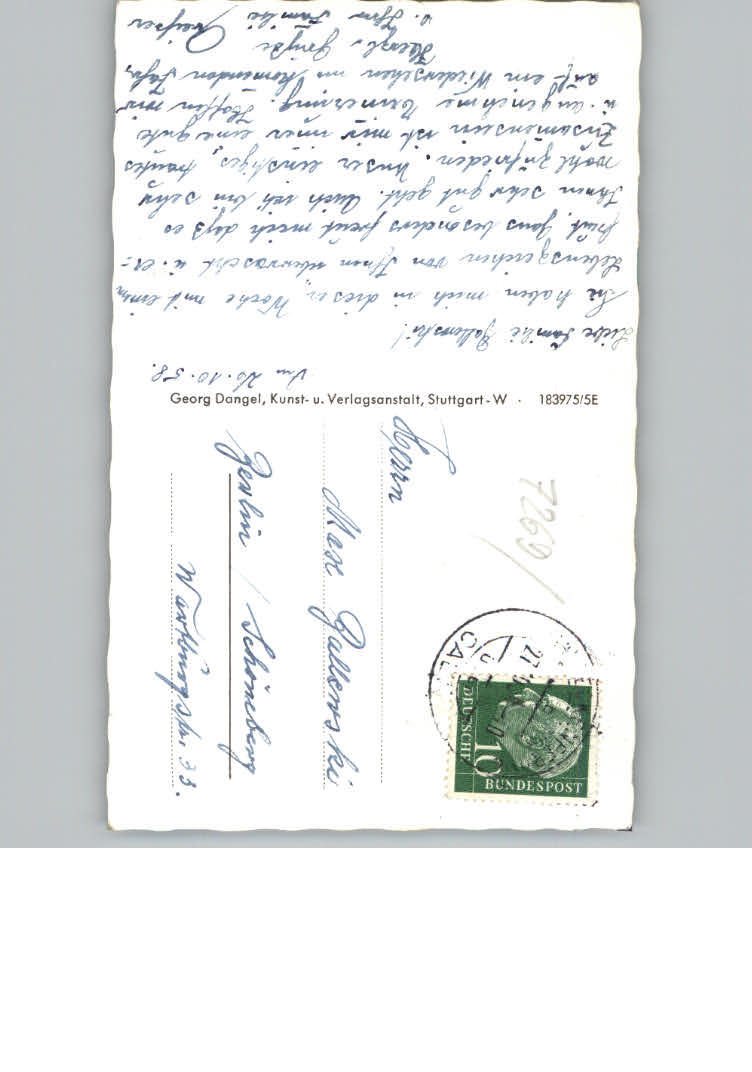 Am 26.10.58.
Liebe Familie Gallowski!
Sie haben mich in dieser Woche mit einem
Lebenszeichen von Ihnen überrascht u. er=
freut. Ganz besonders freut mich daß es
Ihnen sehr gut geht. Auch ich bin sehr
wohl zufrieden. Unser einstiges, trautes
Zusammensein ist mir immer eine gute
u. angenehme Erinnerung. Hoffen wir
auf ein Wiedersehen im kommenden Jahr,
Herzl. Grüße
u. Ihrer Familie
Georg Dangel, Kunst- u. Verlagsanstalt, Stuttgart-W · 183975/5E
Herrn
Max Gallowski
Berlin / Schöneberg
Wartburgstr. 33.
7269/
CAL
27
DEUTSCHE
10
BUNDESPOST